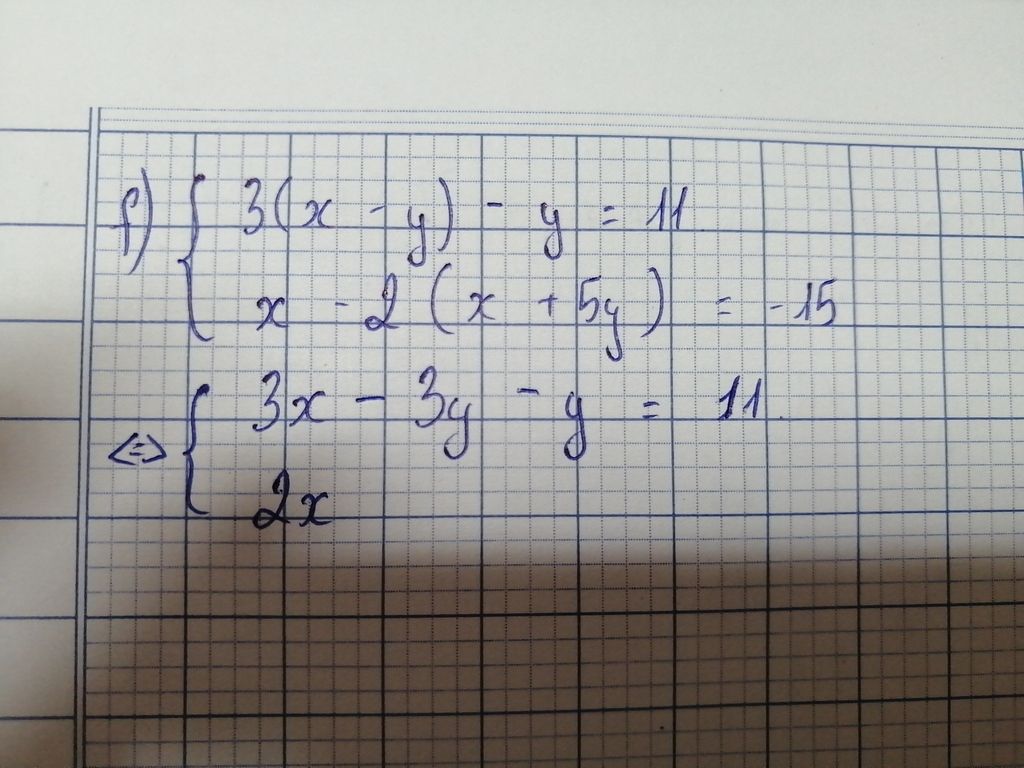 f) { 3(x - y) - y = 11
x - 2(x + 5y) = -15
<=> { 3x - 3y - y = 11.
2x